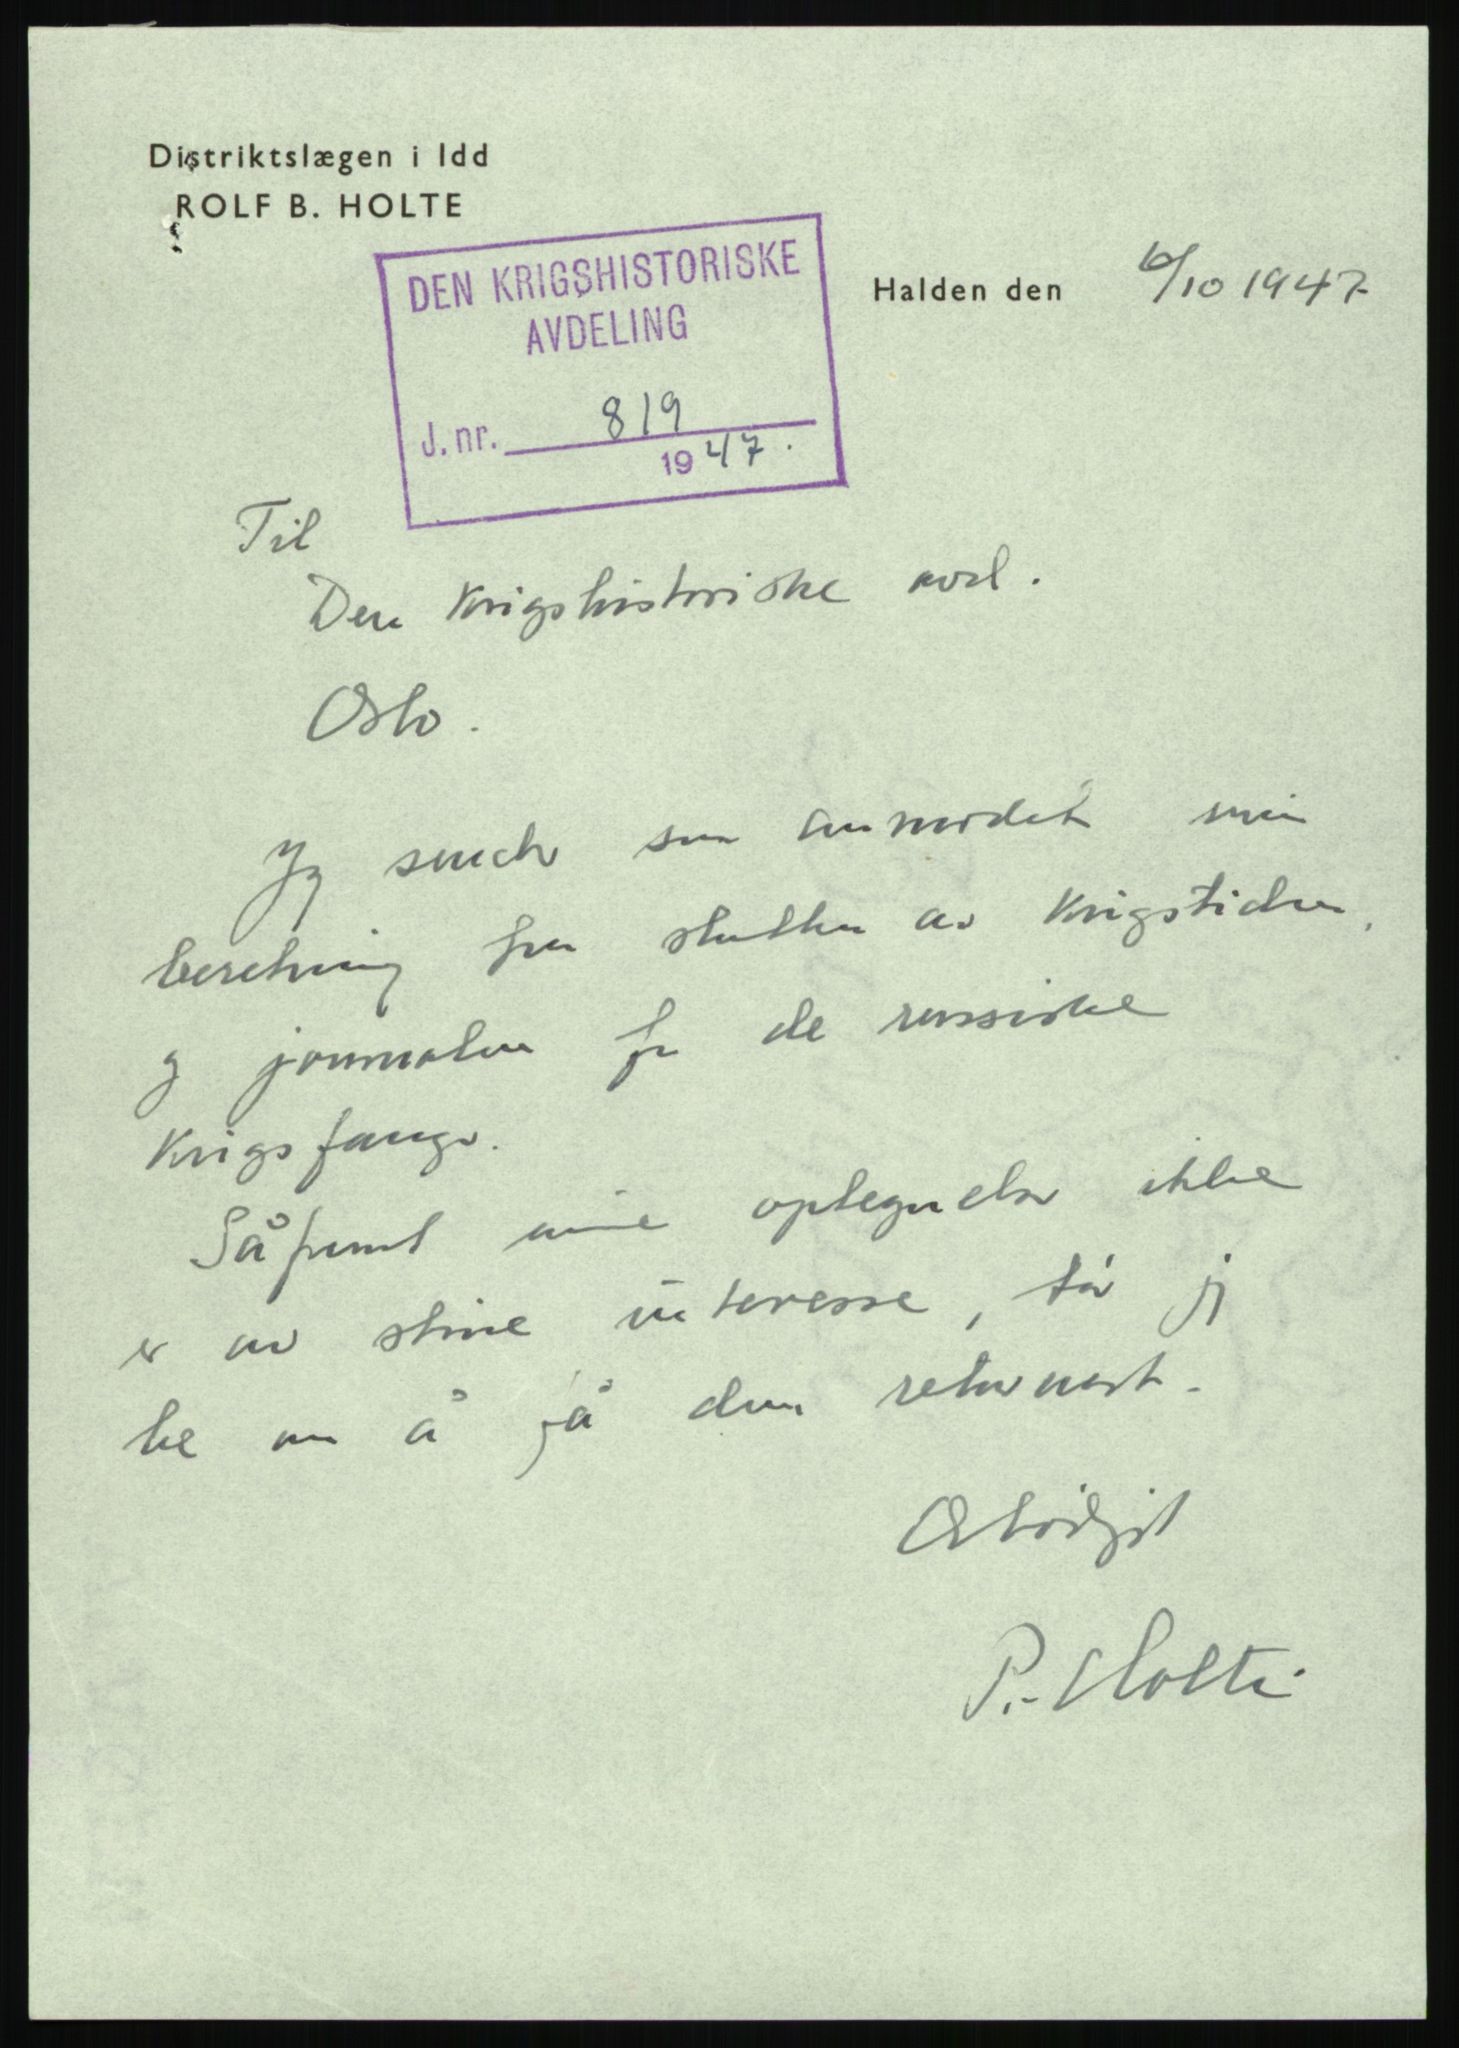 Distriktslægen i Idd
ROLF B. HOLTE
DEN KRIGSHISTORISKE
AVDELING
J. nr. 819
1947.
Halden den 6/10 1947
Til
Den Krigshistoriske avd.
Oslo.
Jeg sender som anmodet min
beretning fra slutten av krigstiden,
og journalen for de russiske
Krigsfanger.
Såfremt mine optegnelser ikke
er av større interesse, tør jeg
be om å få dem returnert.
Ærbödigst
R. Holte